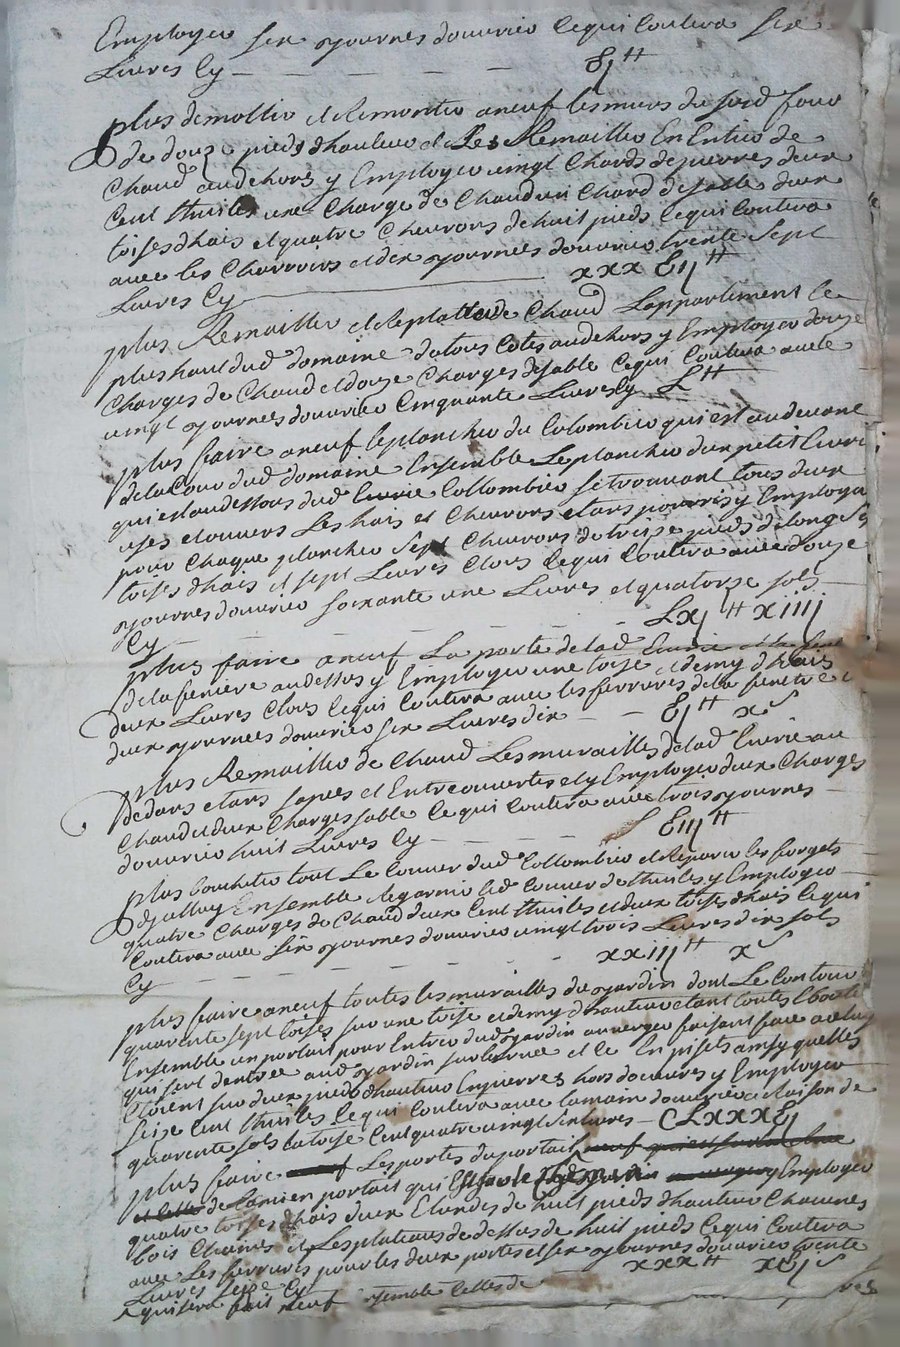 Employer six journes douvrier ce qui Coutera six
Livres Cy — — — — — — 6 ₶
plus demollir et remonter aneuf les murs du susd four
de douze pieds dhauteur et Les Remailler En Entier de
Chaud audehors y Employer vingt Chards de pierres deux
Cent thuiles une Charge de Chaud un Chard de sable deux
toises dhais et quatre Chevrons de huit pieds Ce qui Coutera
avec les Charrois et dix journées douvrier trente Sept
Livres Cy xxx Eij ₶
plus Remailler et replattre de Chaud Lappartement le
plus haut dud domaine detous Cotes audehors y Employer douze
Charges de Chaud et douze Charges de sable Ce qui Coutera avec
vingt journées douvrier Cinquante Livres Cy L ₶
plus faire aneuf le plancher du Colombier qui est audevant
de la Cour dud domaine Ensemble Le plancher dun petit Ecurie
qui est audessous dud Collombier se trouvant tous deux
uses et ouverts Les hais et Chevrons etans pourris y Employer
pour Chaque plancher Sept Chevrons de treize pieds de long
toises dhais et sept Livres Clous Ce qui Coutera avec douze
journes douvrier soixante une Livres et quatorze sols
Cy — Lxj ₶ xiiij
plus faire aneuf La porte de lad Ecurie
de la feniere audessus y Employer une toise et demy dhais
deux Livres Clous Ce qui Coutera avec les ferrures de la fenetre
deux journees douvrier six Livres dix — — 6 ₶ x s
plus Remailler de Chaud Les murailles de lad Ecurie au
dedans etans sapées et Entreouvertes et y Employer deux Charges
Chaud et deux Charges sable Ce qui Coutera avec trois journes
douvrier huit Livres Cy — — — — Eiij ₶
plus tout Le Couver dud Collombier et reparer les forgets
Ensemble Regarnir led Couver de thuiles y Employer
quatre Charges de Chaud deux Cent thuiles et deux toises dhais Ce qui
Coutera avec six journes douvrier vingt trois Livres dix sols
Cy — — — — — — xxiij ₶ x s
plus faire aneuf toutes les murailles du jardin dont Le Contour
quarente sept toises sur une toise et demy dhauteur etant toutes
Ensemble un portail pour Entrer dud jardin au verger faisant face a celuy
qui sert dentrée aud jardin sur la rue et le En pisets ainsy quelles
Etoient sur deux pieds dhauteur En pierres hors doeuvres y Employer
seize Cent thuiles Ce qui Coutera avec la main douvrier a Raison de
quarente sols la toise Cent quatre vingt six livres — CLxxxEj
plus faire Les portes du portail
de Lancien portail qui Est y Employer
quatre toises dhais deux Elandes de huit pieds dhauteur Chacunes
bois Chaines et Les plateaux de dessus de huit pieds Ce qui Coutera
avec Les ferrures pour les deux portes et six journes douvrier trente
Livres seize Cy xxx ₶ xEj s
qui sera fait neuf semble Celles de